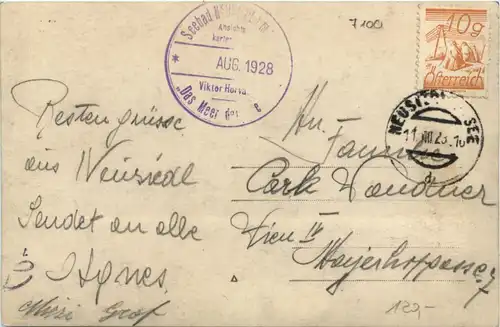 7100
Seebad
Ansichts
karten
* AUG. 1928
Viktor Horva
„Das Meer der e
10g
Österreich
NEUSI SEE
11.VIII.28.16
Bestengrüsse
aus Neusiedl
Sendet an alle
Agnes
Mizi Graf
An
Familie
Carl
Wien IV
Mayerhofgasse 7
120,-